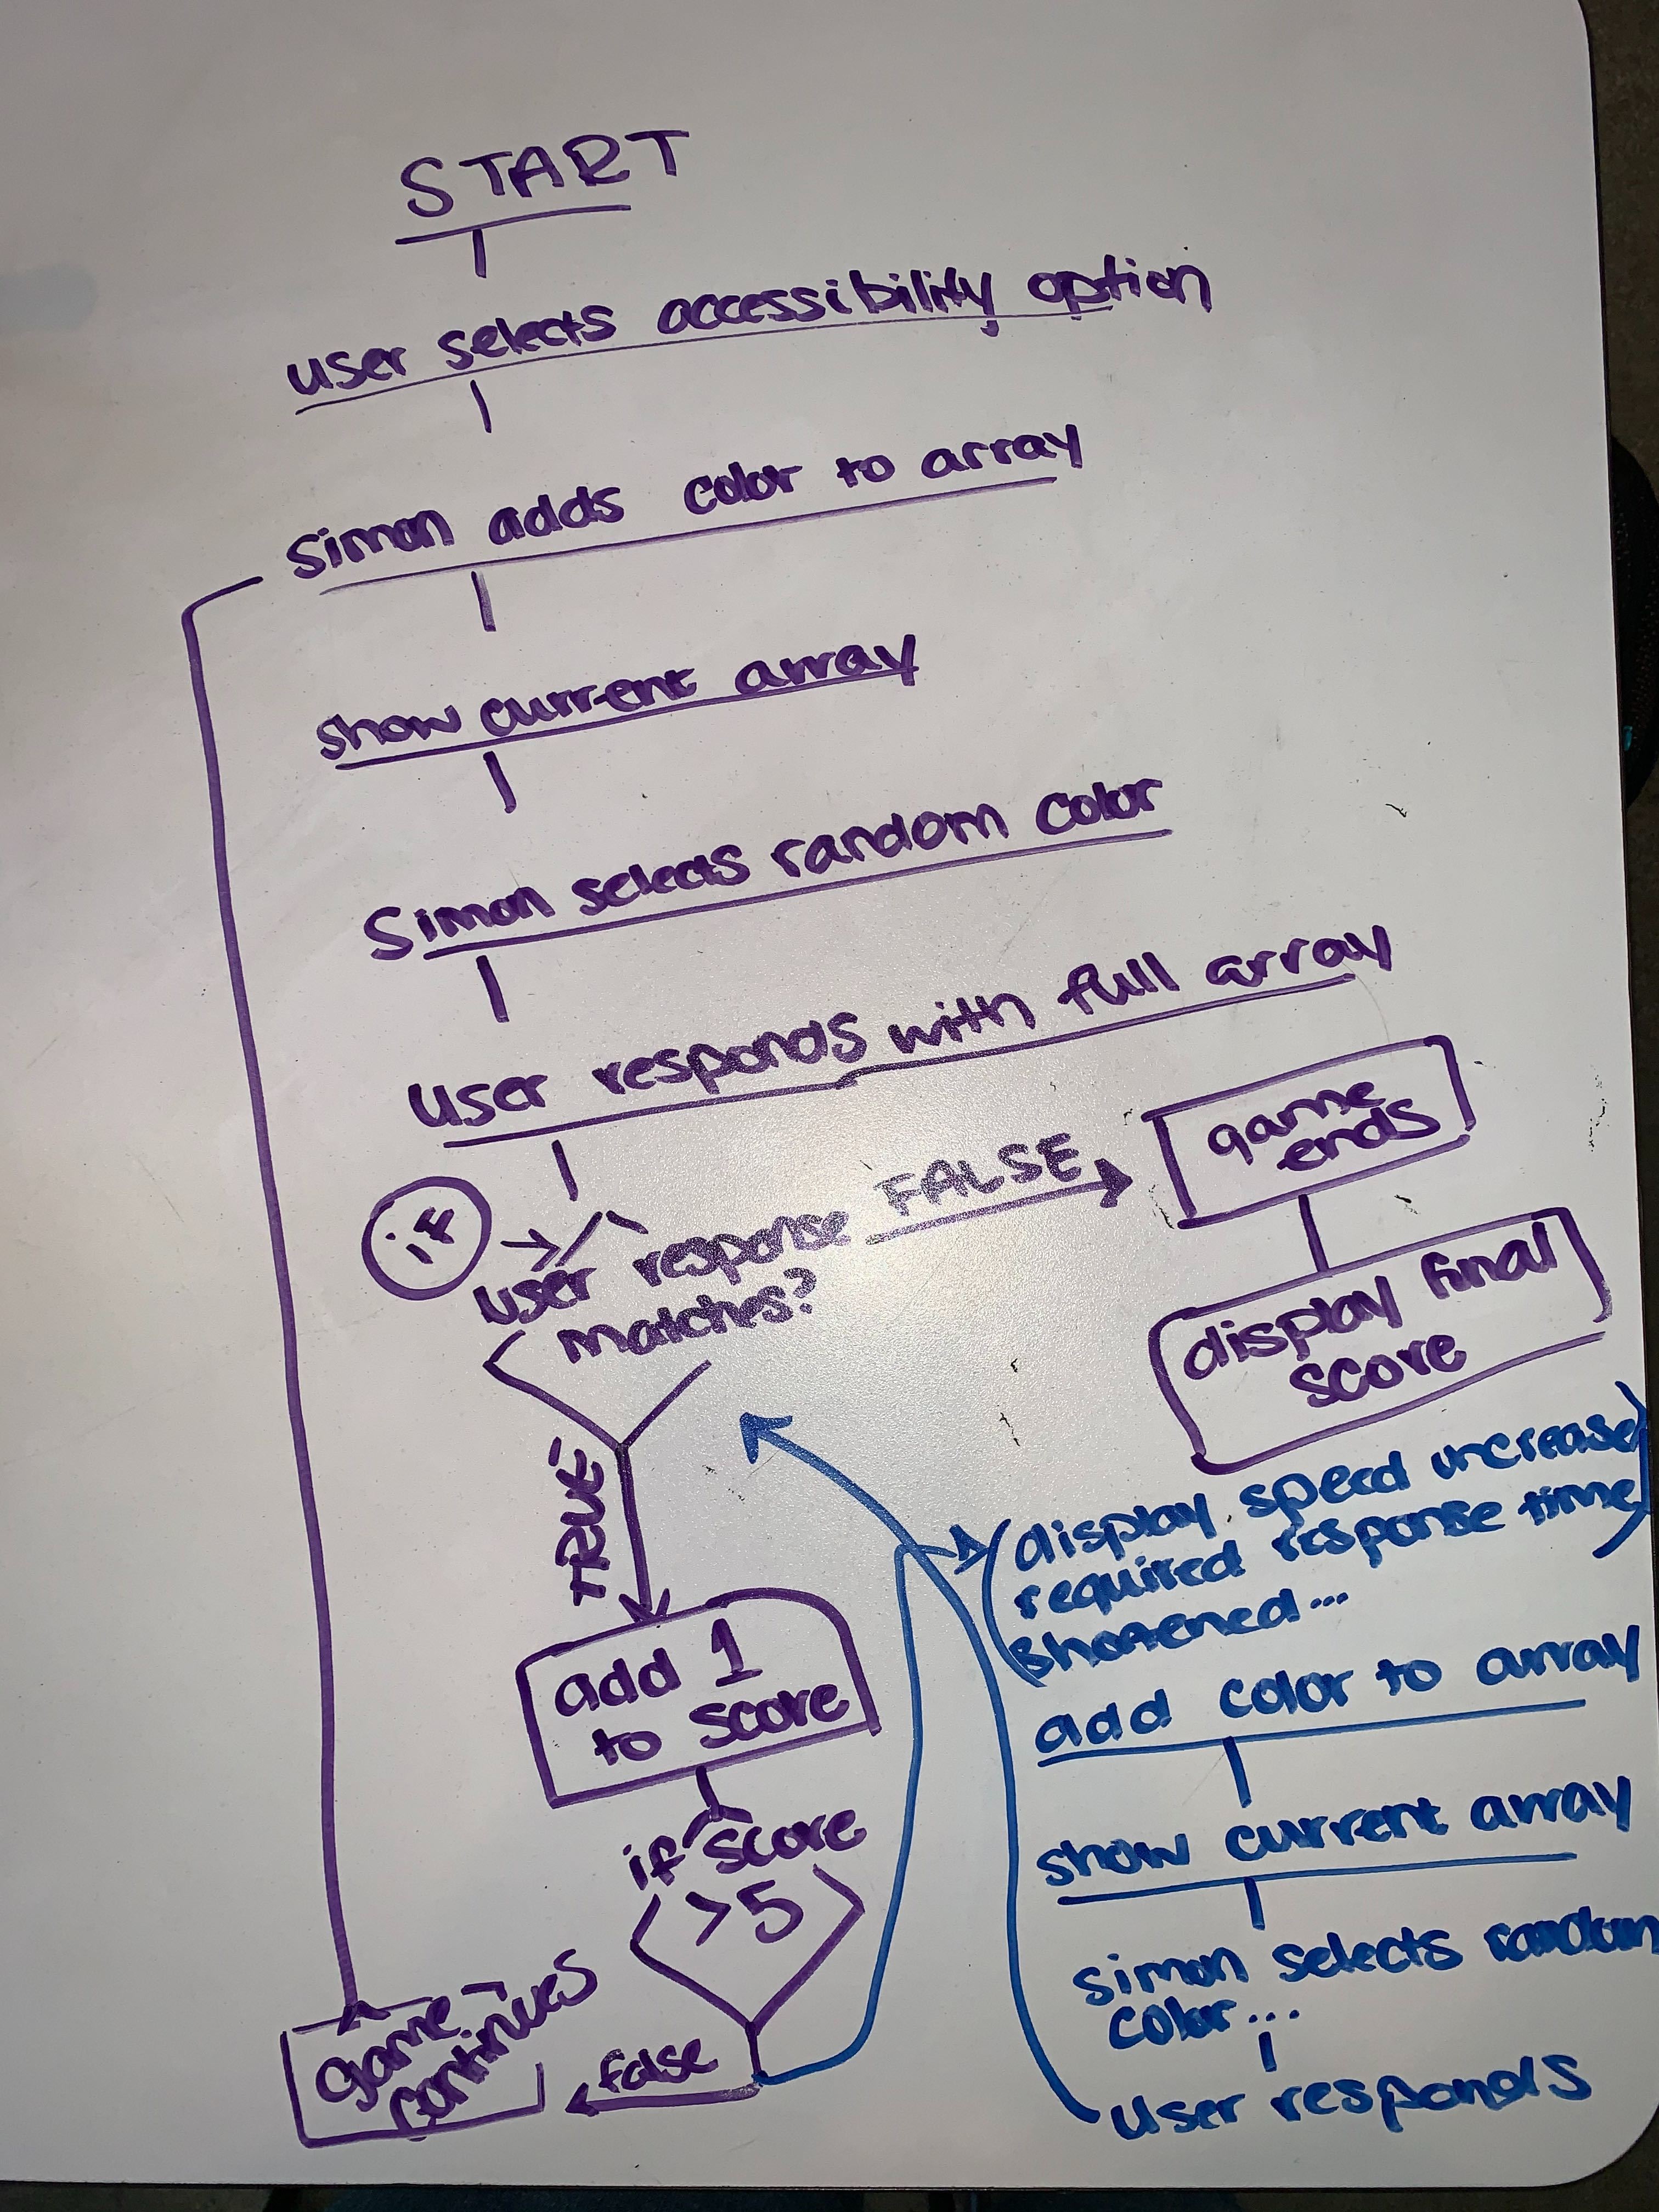 START
user selects accessibility option
Simon adds color to array
show current array
Simon selects random color
User responds with full array
if
user response
matches?
FALSE
game
ends
display final
score
TRUE
add 1
to score
if score
>5
false
game
continues
(display speed increase)
required response time
shortened...
add color to array
show current array
simon selects random
color...
user responds